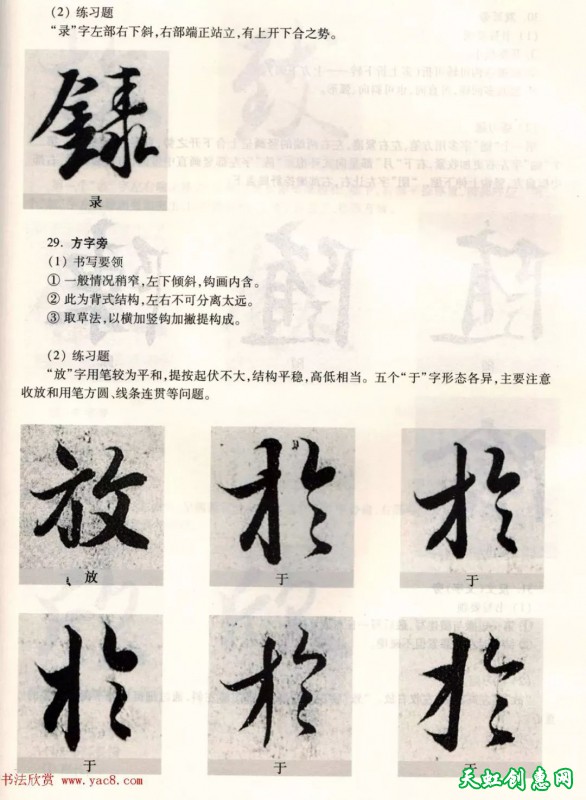 (2) 练习题
“录”字左部右下斜,右部端正站立,有上开下合之势。
錄
录
29. 方字旁
(1) 书写要领
① 一般情况稍窄,左下倾斜,钩画内含。
② 此为背式结构,左右不可分离太远。
③ 取草法,以横加竖钩加撇提构成。
(2) 练习题
“放”字用笔较为平和,提按起伏不大,结构平稳,高低相当。五个“于”字形态各异,主要注意
收放和用笔方圆、线条连贯等问题。
放 於 於
放 于 于
於 於 於
于 于 于
书法欣赏 www.yac8.com
天虹创意网